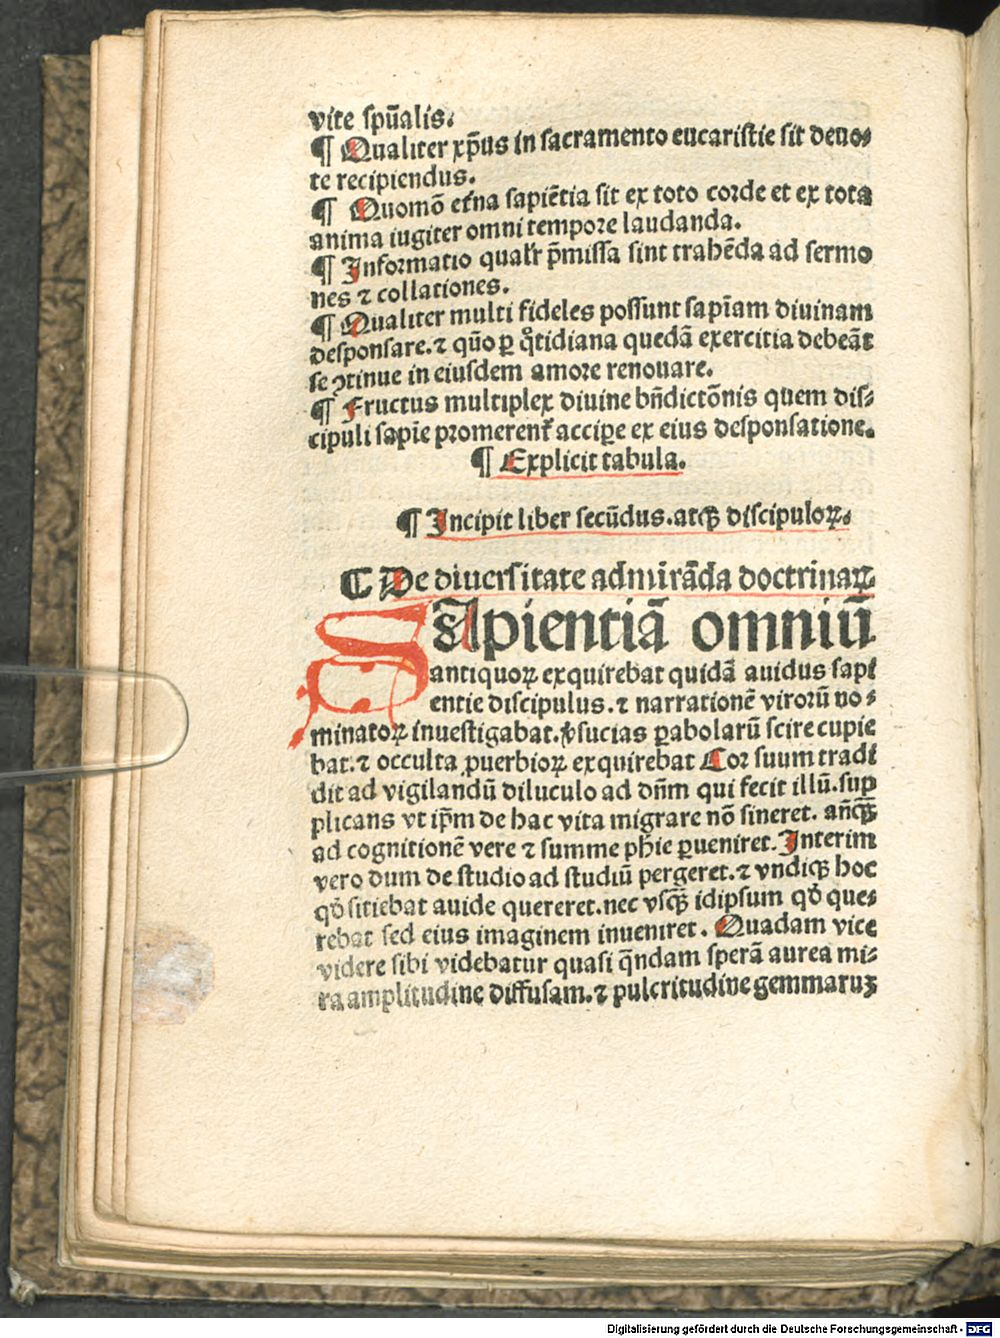 vite spũalis.
¶ Qualiter xp̃us in sacramento eucaristie sit deuo⸗
te recipiendus.
¶ Quomõ et̃na sapiẽtia sit ex toto corde et ex tota
anima iugiter omni tempore laudanda.
¶ Informatio qualr̃ p̃missa sint trahẽda ad sermo
nes ⁊ collationes.
¶ Qualiter multi fideles possunt sapĩam diuinam
desponsare.⁊ quõo ꝑ q̃tidiana quedã exercitia debeãt
se ꝯtinue in eiusdem amore renouare.
¶ Fructus multiplex diuine bñdictõnis quem dis⸗
cipuli sapĩe promerent̃ accipe ex eius desponsatione.
¶ Explicit tabula.
¶ Incipit liber secũdus.atqꝫ discipuloꝝ.
¶ De diuersitate admirãda doctrinaꝝ
SApientiã omniũ
antiquoꝝ exquirebat quidã auidus sapi
entie discipulus.⁊ narrationẽ virorũ no⸗
minatoꝝ inuestigabat.ṽsucias ꝑabolarũ scire cupie
bat.⁊ occulta ꝓuerbioꝝ exquirebat Cor suum tradi
dit ad vigilandũ diluculo ad dñm qui fecit illũ.sup
plicans vt ip̃m de hac vita migrare nõ sineret. añqꝫ̃
ad cognitionẽ vere ⁊ summe phĩe ꝑueniret. Interim
vero dum de studio ad studiũ pergeret.⁊ vndiqꝫ hoc
qd̃ sitiebat auide quereret.nec vsqꝫ̃ idipsum qd̃ que⸗
rebat sed eius imaginem inueniret. Quadam vice
videre sibi videbatur quasi q̃ndam sperã aurea mi⸗
ra amplitudine diffusam.⁊ pulcritudine gemmaruꝫ
Digitalisierung gefördert durch die Deutsche Forschungsgemeinschaft - DFG